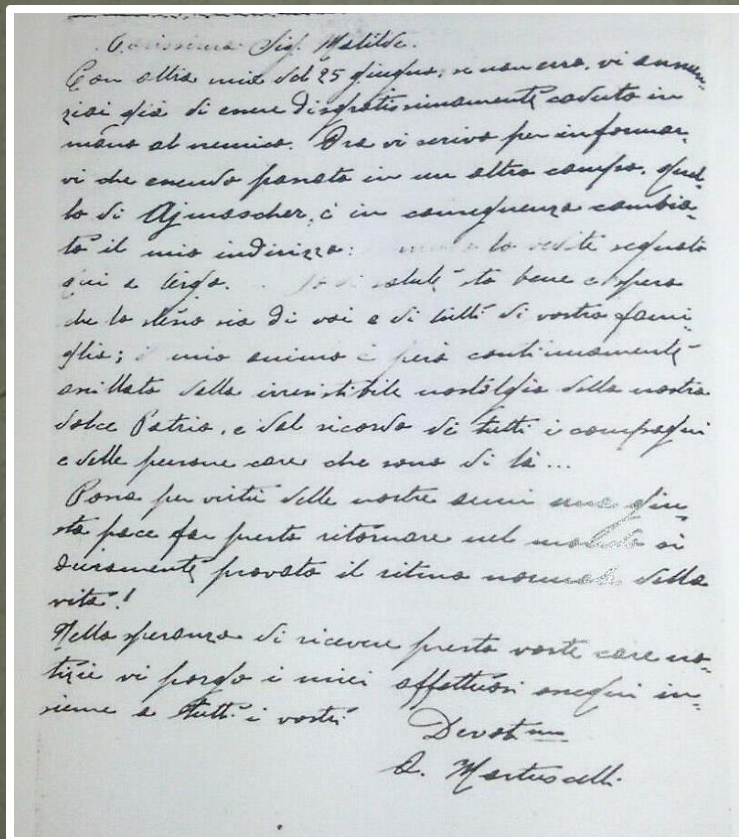 Carissima Sig. Matilde.
Con altra mia del 25 giugno, se non erro, vi annun-
ziai già di essere disgratissimamente caduto in
mano al nemico. Ora vi scrivo per informar-
vi che essendo passato in un altro campo, quel-
lo di Ajmascher, è in conseguenza cambia-
to il mio indirizzo: lo vedete segnato
qui a tergo. salute sto bene e spero
che lo stesso sia di voi e di tutti di vostra fami-
glia; mio animo è però continuamente
assillato dalla irresistibile nostalgia della nostra
dolce Patria, e dal ricordo di tutti i compagni
e delle persone care che sono di là...
Possa per virtù delle nostre armi una giu-
sta pace far presto ritornare nel mondo sì
duramente provato il ritmo normale della
vita!
Nella speranza di ricevere presto vostre care no-
tizie vi porgo i miei affettuosi ossequi in-
sieme a tutti i vostri
Devot mo
A. Martuscelli